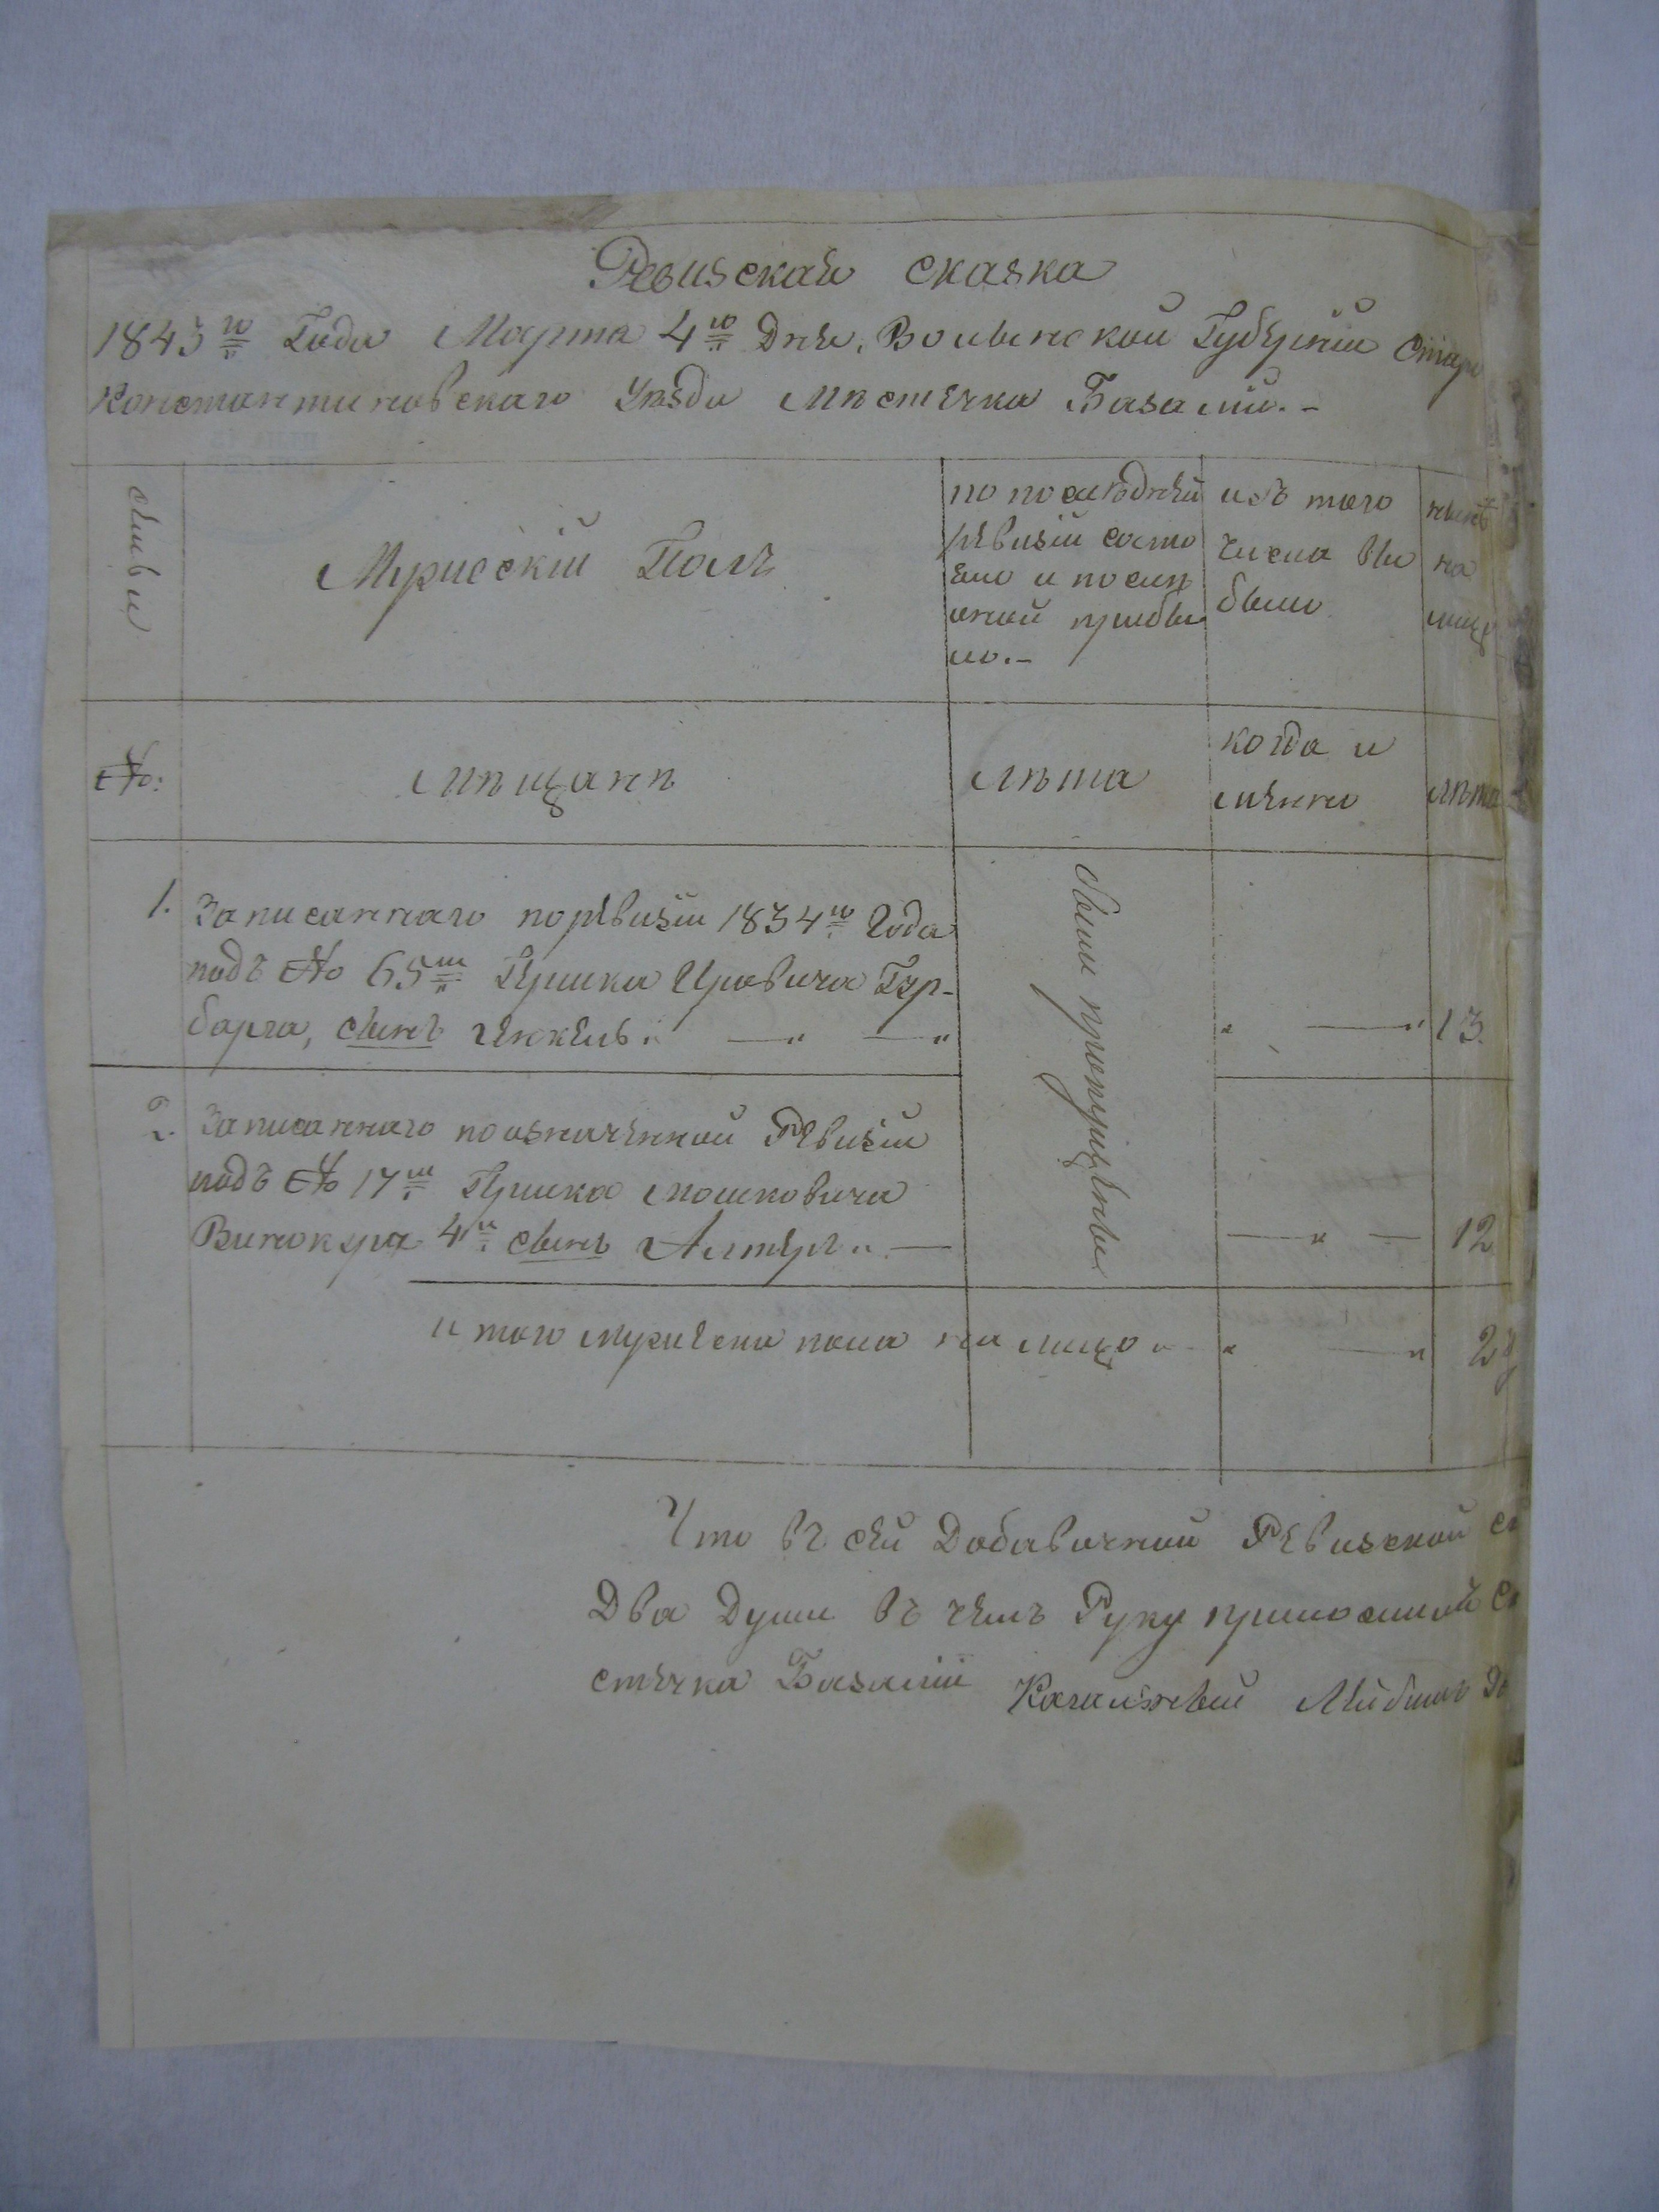 Ревизская сказка
1843го Года Марта 4го Дня, Волынской Губернии Старо
Константиновского Уезда Местечка Базалии.-
семьи
Мужеский Полъ
по последней
ревизии состо
яло и после
оной прибы
ло.-
изъ того
числа вы
было
ныне
на
лицо
№:
Мещане
лета
когда и
именно
лета
1.
Записанного по ревизии 1834го Года
подъ № 65м Гершка Ицковича Гер-
барга, сынъ Янкель
были пропущены
13.
2.
Записанного по означенной Ревизии
подъ № 17м Гершка Мошковича
Винокура 4й сынъ Алтеръ
12
Итого мужеска пола на лицо
2
Что въ сей Добавочной Ревизской
Два Души въ чемъ Руку приложилъ
стечка Базалии Кагальный Лейбишъ